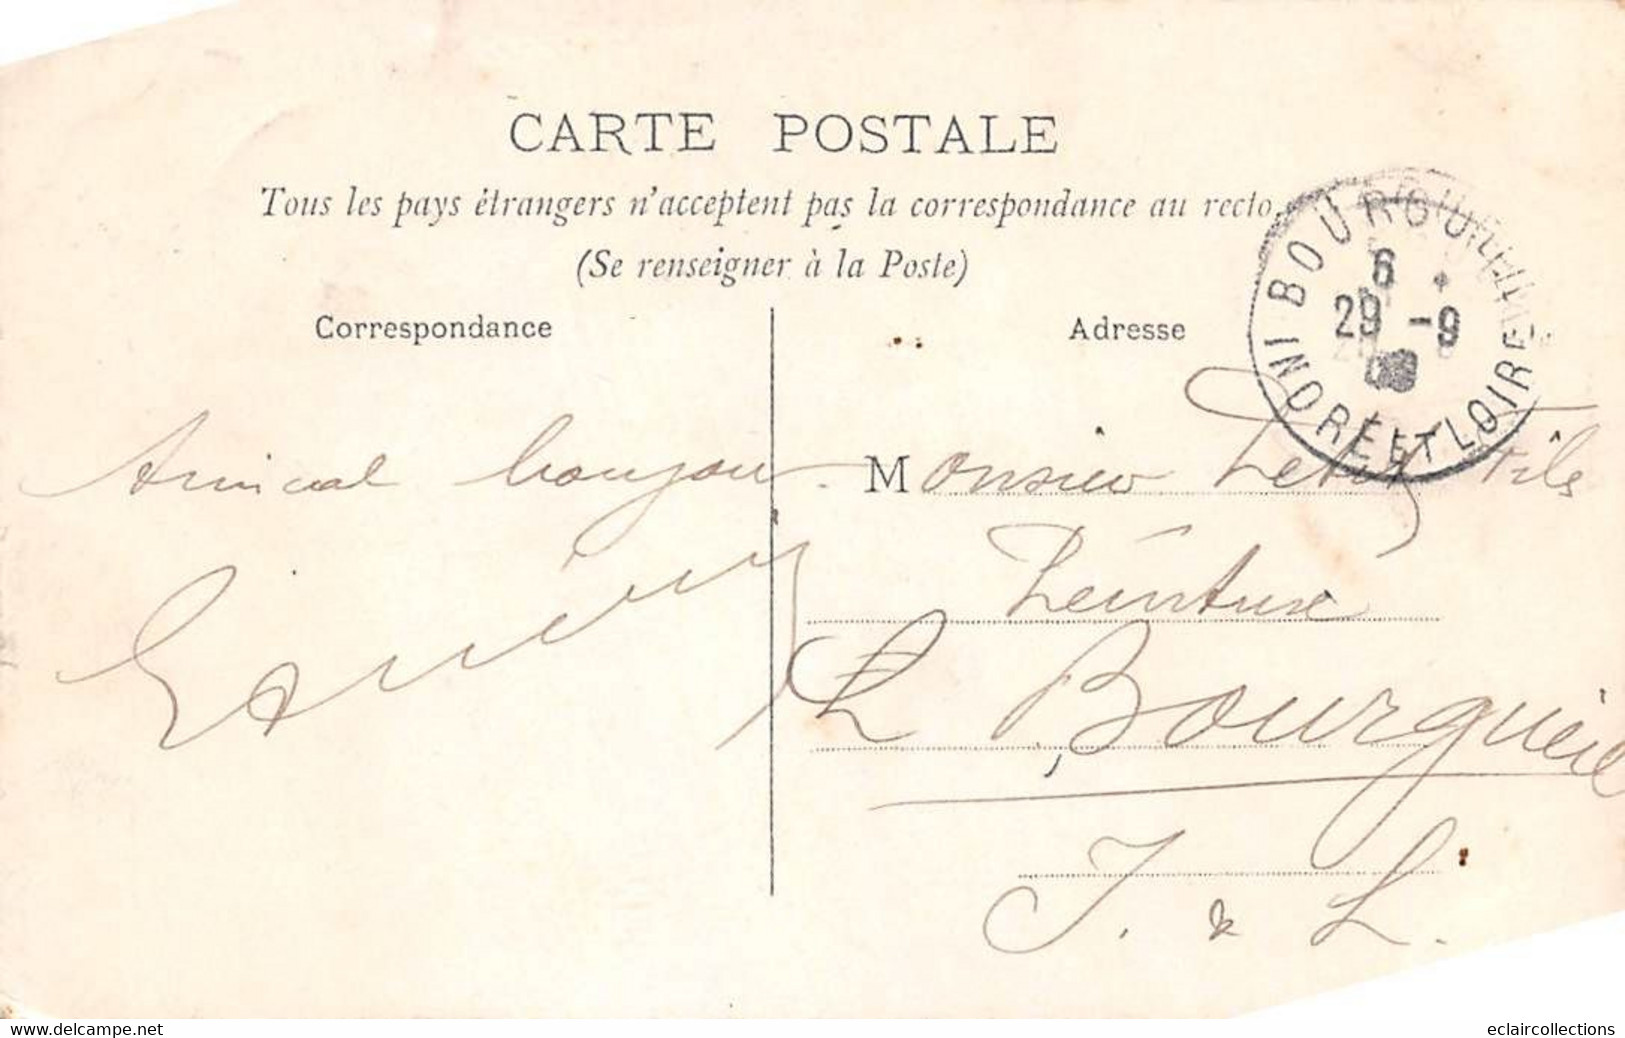 CARTE POSTALE
Tous les pays étrangers n'acceptent pas la correspondance au recto.
(Se renseigner à la Poste)
Correspondance
Adresse
BOURGUEIL
6
29 -9
INDRE ET LOIRE
Amical bonjour.
Monsieur Fils
Peinture
Bourgueil
I. & L.
www.delcampe.net
eclaircollections